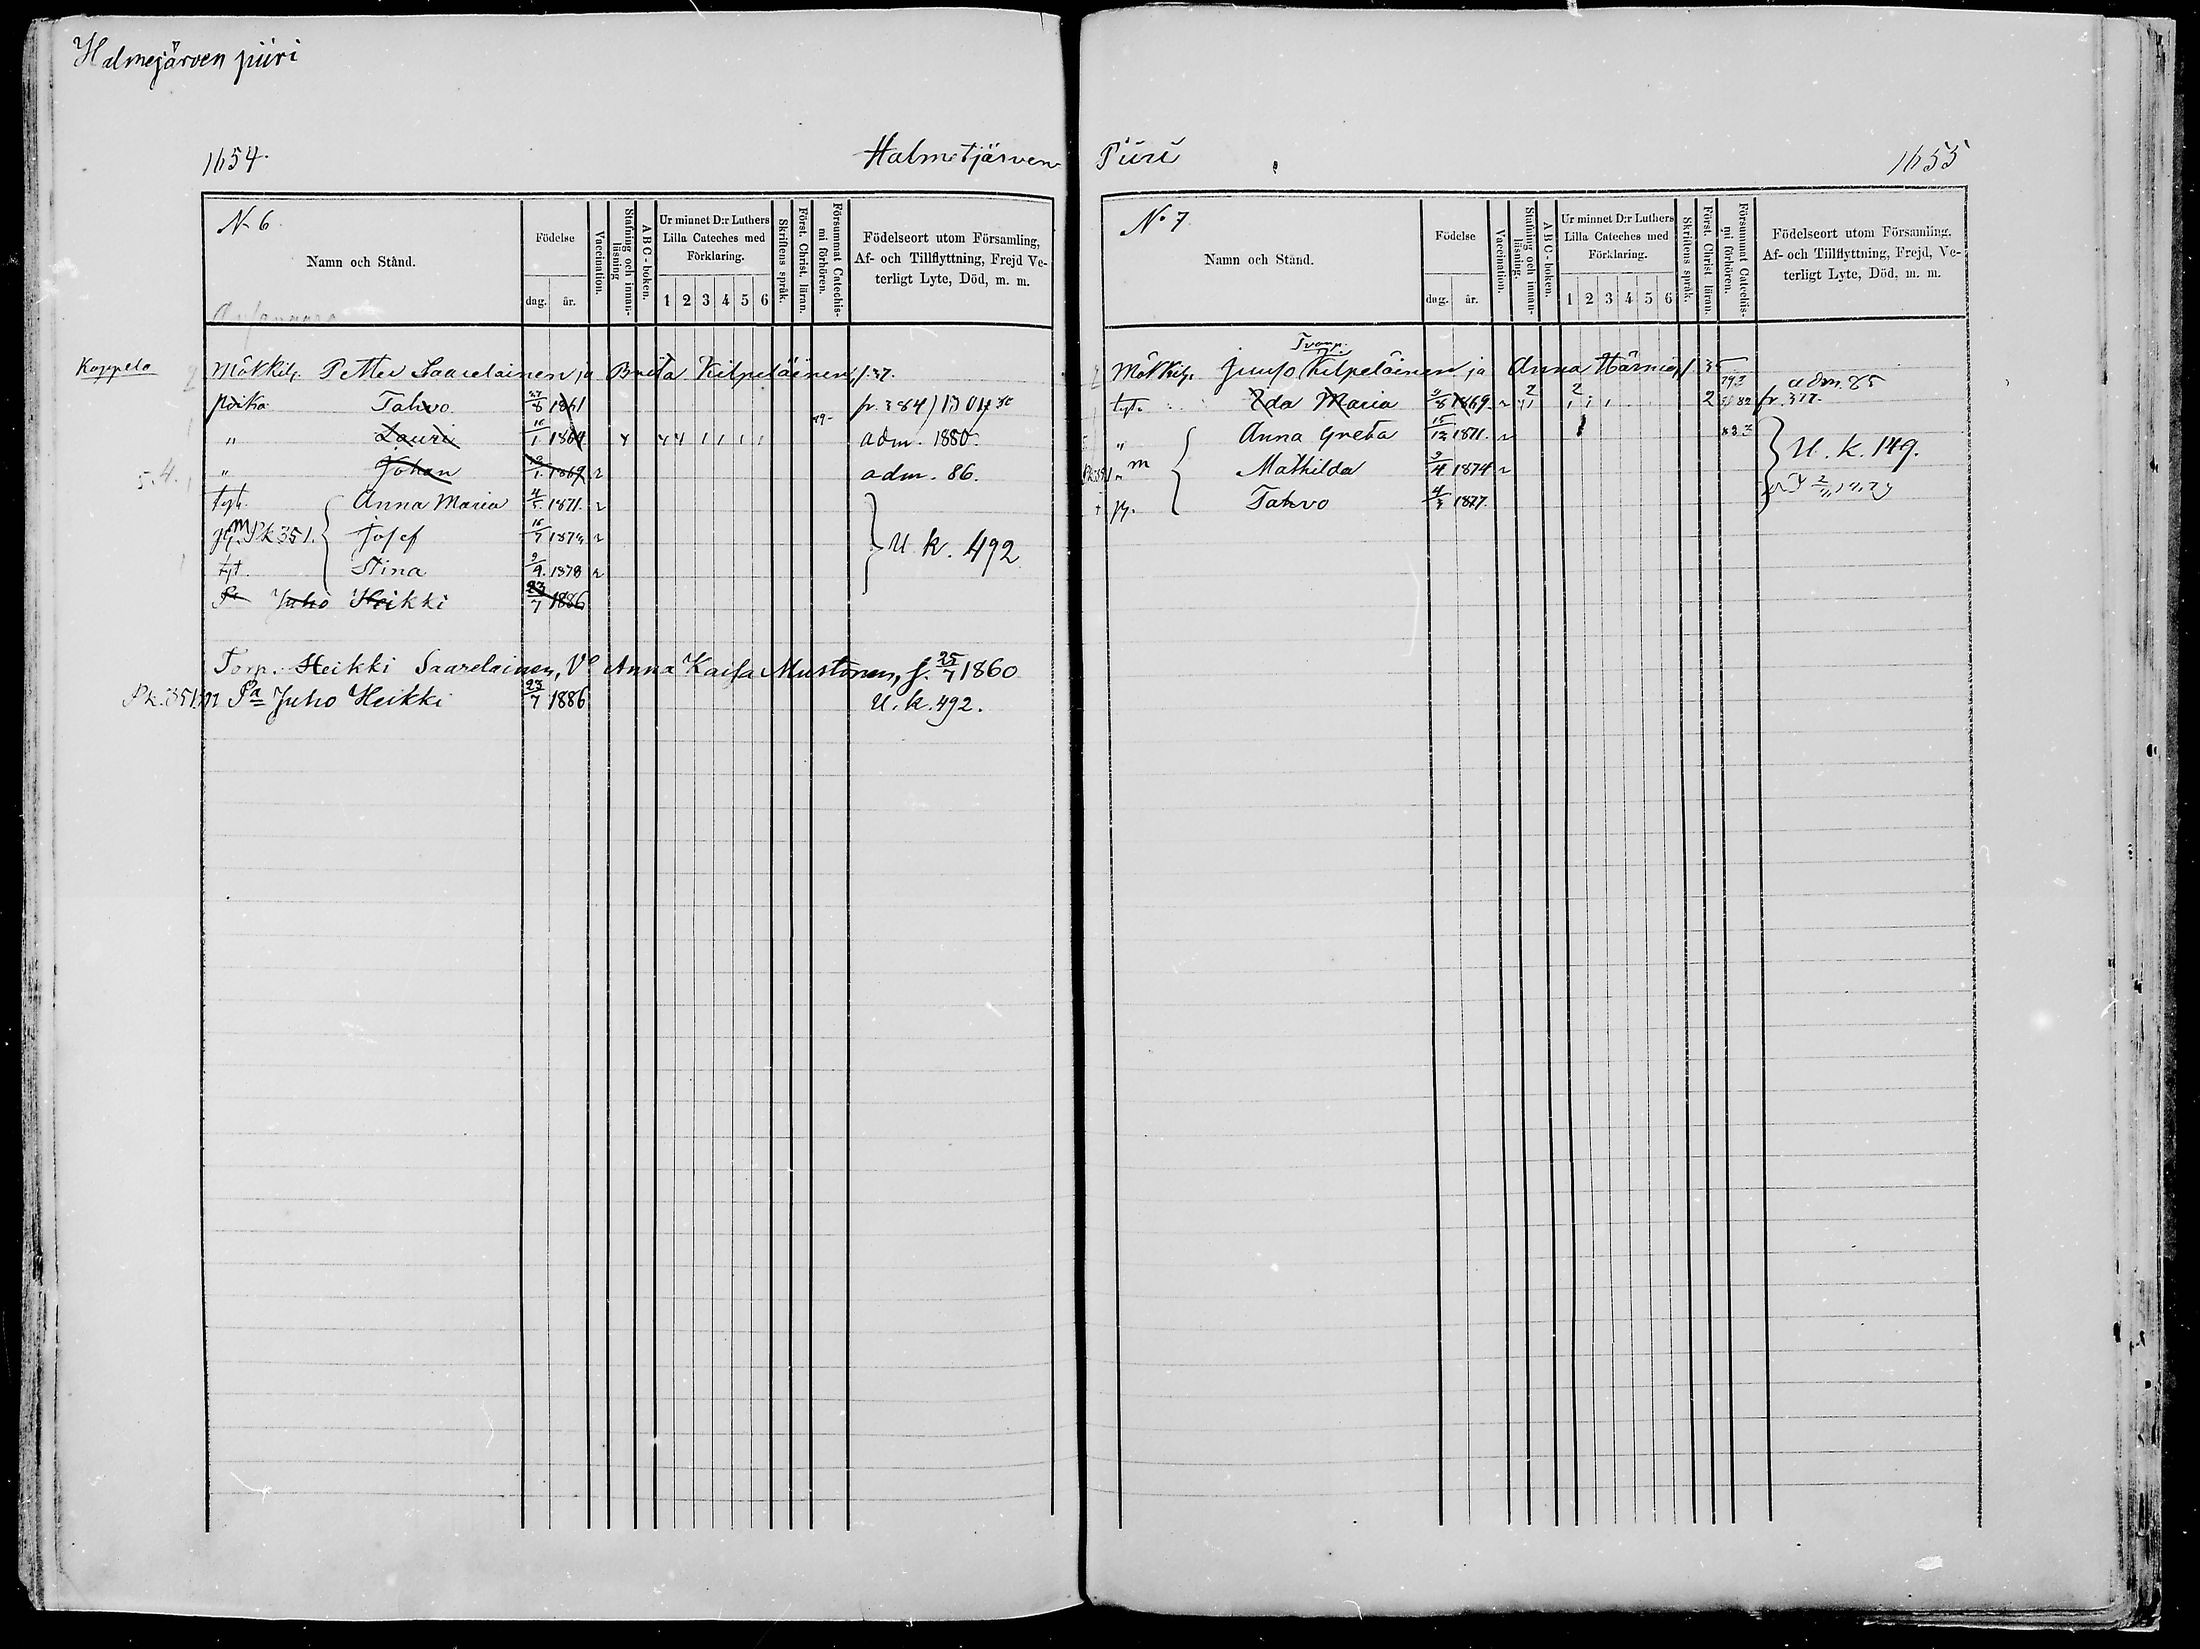 Halmejärven piiri
1654.
Halmetjärven
N. 6.
Namn och Stånd.
Födelse
dag. år.
Vaccination.
Stafning och innanläsning
ABC-boken.
Ur minnet D:r Luthers Lilla Cateches med Förklaring.
1 2 3 4 5 6
Skriftens språk.
Först. Christ. läran.
Försummat Catechismi förhören.
Födelseort utom Församling, Af- och Tillflyttning, Frejd Veterligt Lyte, Död, m. m.
Koppelo
Mökkil. Petter Saarelainen ja Brita Kilpeläinen, f. 37.
poika Tahvo 27/8 1861 fr. 384
" Lauri 16/1 1864 4 4 4 1 1 1 1 adm. 1880.
5. 4. " Johan 1867 adm. 86.
tyt. Anna Maria 4/5 1871.
Pk 351. Josef 16/7 1874
tyt. Stina 9/9. 1878
U. k. 492
Pa Juho Heikki 23/7 1886
Torp. Heikki Saarelainen, Vo Anna Kaisa Mustonen, f. 25/7 1860
Pk. 351 m Pa Juho Heikki 23/7 1886 U. k. 492.
Piiri
1655
No 7
Namn och Stånd.
Födelse
dag. år.
Vaccination.
Stafning och innanläsning.
ABC-boken.
Ur minnet D:r Luthers Lilla Cateches med Förklaring.
1 2 3 4 5 6
Skriftens språk.
Först. Christ läran.
Försummat Catechismi förhören.
Födelseort utom Församling. Af- och Tillflyttning, Frejd, Veterligt Lyte, Död, m. m.
Mökkil. Juuso Kilpeläinen ja Anna Härmä, f. 35
adm. 85
tyt. Eda Maria 1869. 2 2 2 82 fr. 377.
" Anna Greta 15/12 1871. 83
m Mathilda 9/4 1874
U. k. 149.
p. Tahvo 4/3 1877.